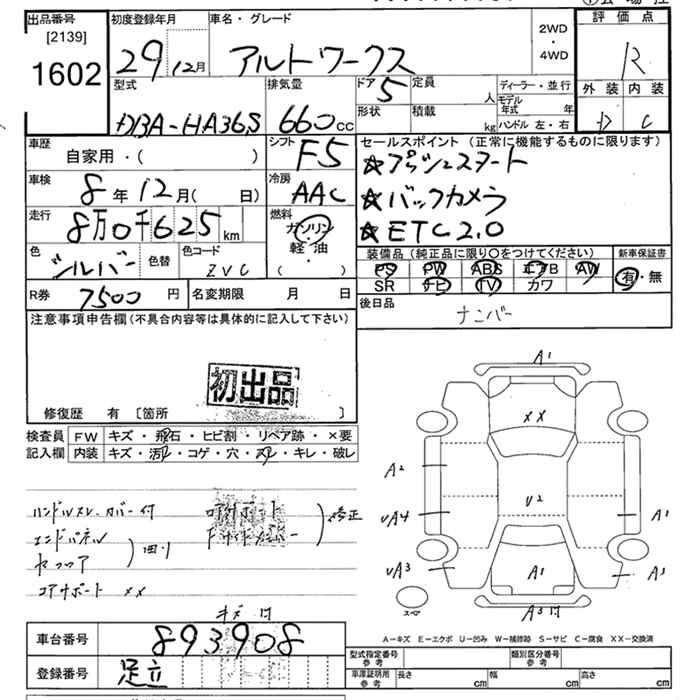 出品番号
[2139]
1602
初度登録年月
29年12月
車名・グレード
アルトワークス
2WD
・
4WD
評価点
R
外装 内装
D C
型式
DBA-HA36S
排気量
660cc
ドア
5
定員
人
形状
積載
kg
ディーラー・並行
モデル年式 年
ハンドル 左・右
車歴
自家用・( )
シフト
F5
セールスポイント (正常に機能するものに限ります)
☆プッシュスタート
☆バックカメラ
☆ETC2.0
車検
8年12月( 日)
冷房
AAC
走行
8万0千625km
燃料
ガソリン
軽・油
( )
色
シルバー
色替
色コード
ZVC
装備品 (純正品に限り○をつけてください)
PS PW ABS エアB AW
SR ナビ TV カワ
新車保証書
有・無
R券
7500円
名変期限 月 日
後日品
ナンバー
注意事項申告欄 (不具合内容等は具体的に記入して下さい)
初出品
修復歴 有 [箇所 ]
検査員
記入欄
FW キズ・飛石・ヒビ割・リペア跡・×要
内装 キズ・汚れ・コゲ・穴・スレ・キレ・破レ
ハンドルスレ カバー付
エンドパネル
コアサポート ××
修正
キズ 付
A1
XX
A2
U2
UA4
A1
UA3
A1
A3
A3
スペア
A-キズ E-エクボ U-凹み W-補修跡 S-サビ C-腐食 XX-交換済
車台番号
893908
登録番号
足立
型式指定番号
参考
類別区分番号
参考
車庫証明用
参考
長さ cm
幅 cm
高さ cm